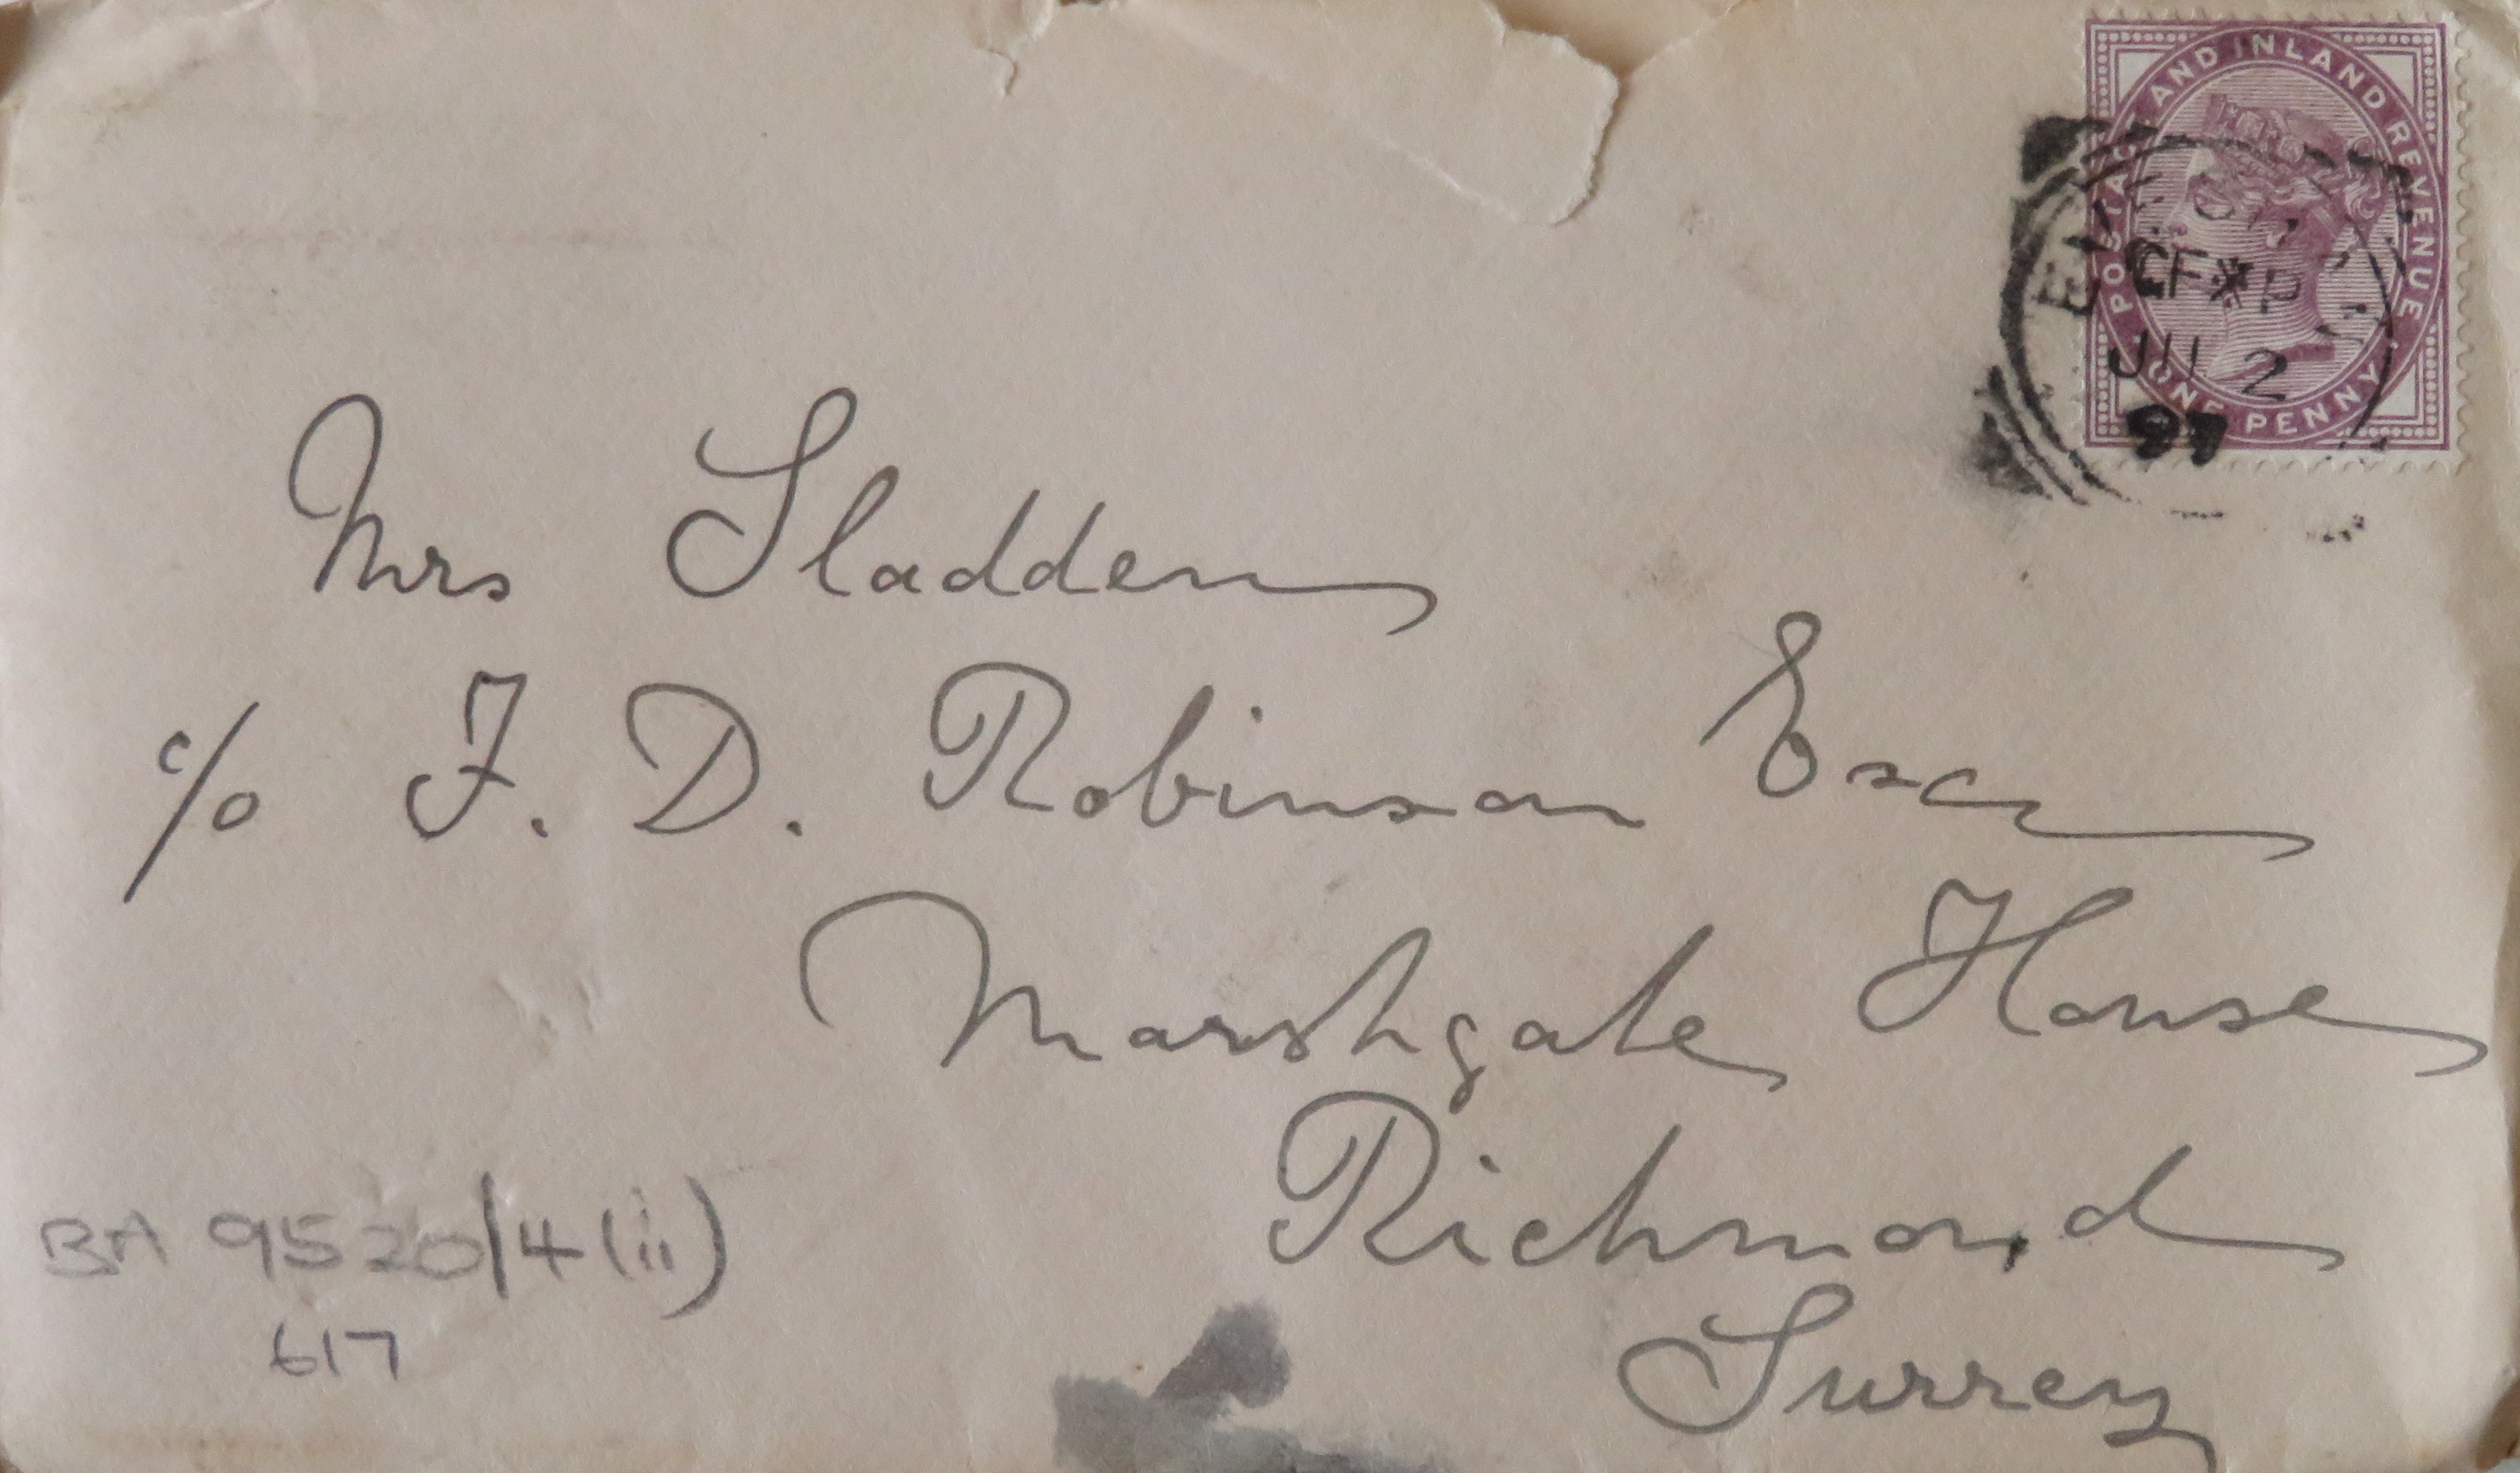 POSTAGE AND INLAND REVENUE
ONE PENNY
JU 2
97
Mrs Sladden
c/o F. D. Robinson Esq
Marshgate House
Richmond
Surrey
BA 9520/4(iii)
617